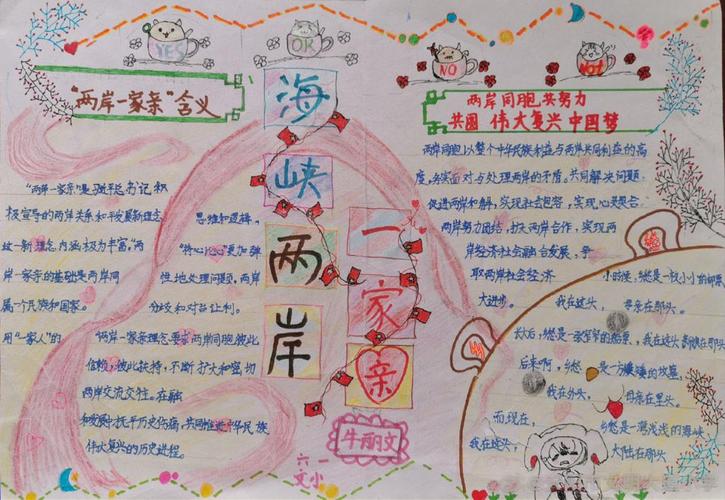 YES
OR
NO
NOT
"两岸一家亲"含义
海峡两岸
一家亲
两岸同胞共努力
共圆 伟大复兴中国梦
"两岸一家亲"是 书记积
极宣导的两岸关系和平发展新理念
这一新理念内涵极为丰富。"两
岸一家亲的基础是两岸同
属一个民族和国家。
用"一家人"的
思维和逻辑。
"将心比心"更加弹
性地处理问题。两岸
分歧和对台让利。
"两岸一家亲理念要求两岸同胞彼此
信赖,彼此扶持,不断扩大和密切
两岸交流交往。在融
和发展中抚平历史伤痛,共同推进中华民族
伟大复兴的历史进程。
两岸同胞以整个中华民族利益与两岸共同利益的高
度,务实面对与处理两岸的矛盾。共同解决问题
促进两岸和解,实现社会包容,实现心灵契合
两岸努力团结,扩大两岸合作,实现两
岸经济社会融合发展,争
取两岸社会经济
大进步。
小时候,乡愁是一枚小小的邮票
我在这头, 母亲在那头。
长大后,乡愁是一张窄窄的船票,我在这头新娘在那头
后来啊,乡愁 是一方矮矮的坟墓,
我在外头, 母亲在里头。
而现在, 乡愁是一湾浅浅的海峡
我在这头, 大陆在那头
六一
文小